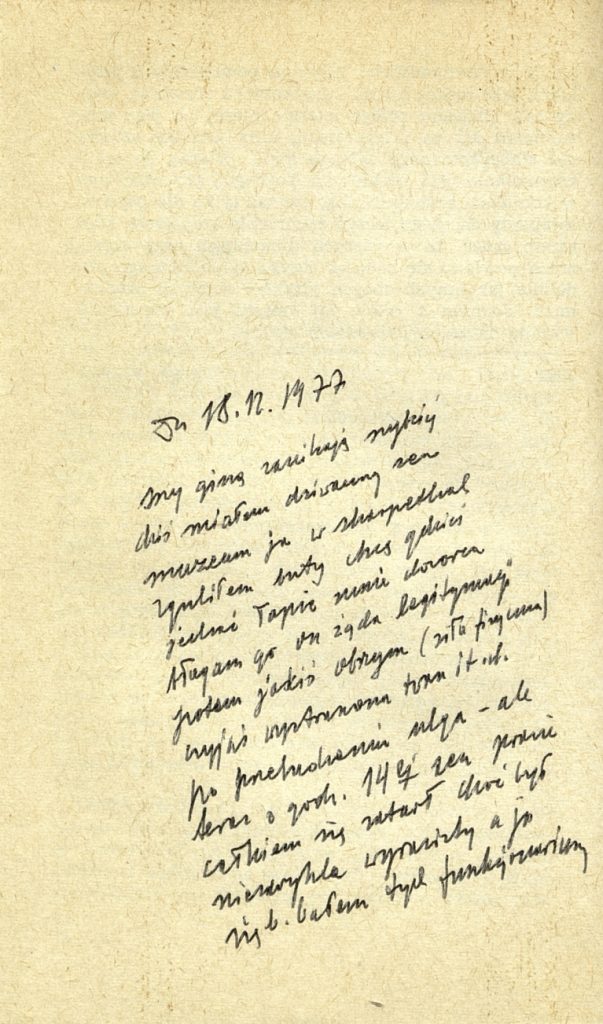 Dn 18.12.1977
sny giną zanikają szybciej
dziś miałem dziwaczny sen
muzeum ja w skarpetkach
zgubiłem buty chcę gdzieś
jechać łapie mnie dozorca
błagam go on żąda legitymacji
potem jakiś olbrzym (siła fizyczna)
czyjaś wystraszona i t.d.
po przebudzeniu ulga – ale
teraz o godz. 14ej sen prawie
całkiem się zatarł choć był
niezwykle wyrazisty a ja
się b. bałem tych funkcjonariuszy